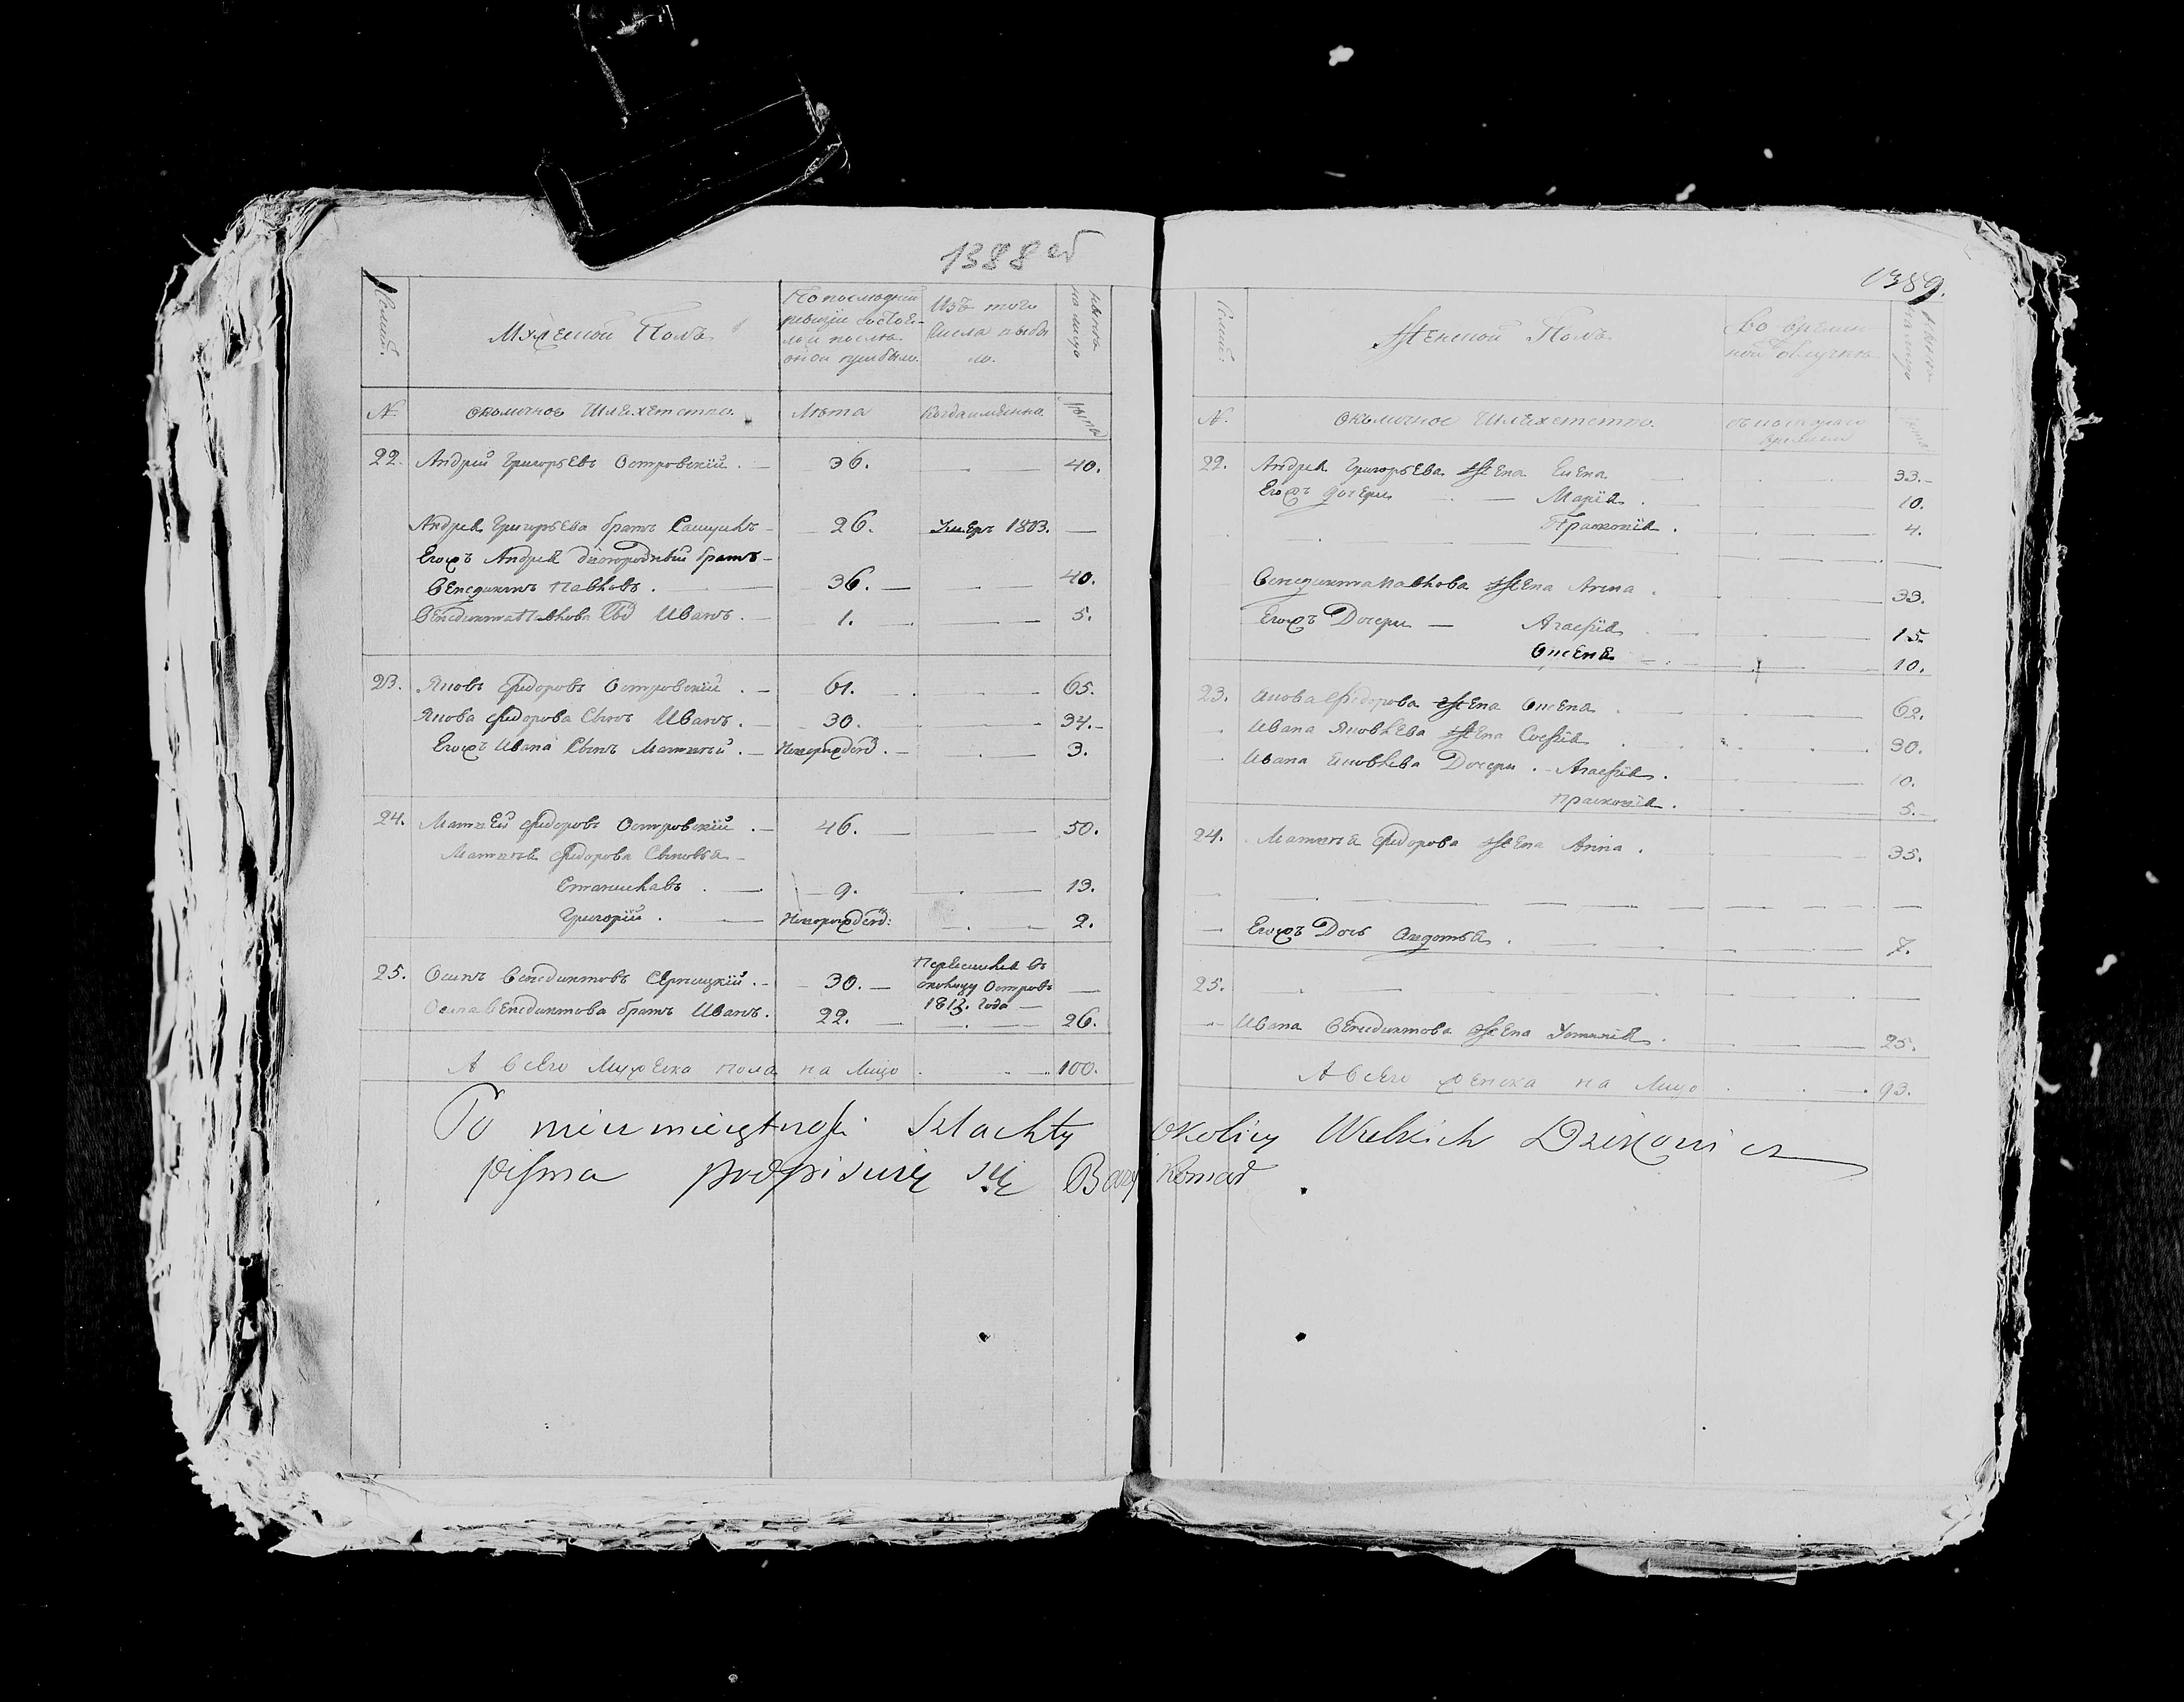 1388 об
Фамил:
Мужеской Полъ
По последней
ревизiи состоя-
ло и после
оной прибыло.
Изъ того
числа выбы
ло.
ныне
на лицо
№
околичное Шляхетство.
Лета
Когда именно.
Лета
22. Андрей Григорьевъ Островскiй . — 36. — 40.
Андрея Григорьева братъ — 26. Умеръ 1813. —
Егожъ Андрея двоюродный братъ —
Венедиктъ Павловъ . — 36. — 40.
Венедикта Павлова Сынъ Иванъ . — 1. — 5.
23. Яковъ Федоровъ Островскiй . — 61. — 65.
Якова Федорова Сынъ Иванъ . — 30. — 34. —
Егожъ Ивана Сынъ Матвей . — Новорожден . — 3.
24. Матвей Федоровъ Островскiй . — 46. — 50.
Матвея Федорова Сыновья —
Станиславъ . — 9. — 13.
Григорiй . — Новорожден: — 2.
25. Осипъ Венедиктовъ . — 30. —
Переселился въ
околицу Островъ
1812. года —
Осипа Венедиктова братъ Иванъ . 22. — 26.
А всего мужеска пола на лицо . — 100.
1389.
Фамил:
Женской Полъ
Во времен
ной отлучке
ныне
на лицо
№
околичное Шляхетство.
съ котораго
времени
Лета
22. Андрея Григорьева Жена Елена — 33. —
Егожъ дочери — Марiя . 10.
Прасковiя . 4.
Венедикта Павлова Жена Анна . 33.
Егожъ Дочери — Агафiя 15.
Оксеня 10.
23. Якова Федорова Жена Оксеня . 62.
Ивана Яковлева Жена Софiя . 30.
Ивана Яковлева Дочери . — Агафiя . 10.
Прасковiя . 5. —
24. Матвея Федорова Жена Анна . 35.
Егожъ Дочь Авдотья . 7.
25. —
Ивана Венедиктова Жена Устинiя . 25.
А всего женска на лицо . 93.
Po nieumieiętności Szlachty Okolicy Wielkich Dzikowicz
pisma podpisuię się Bazyl Komar